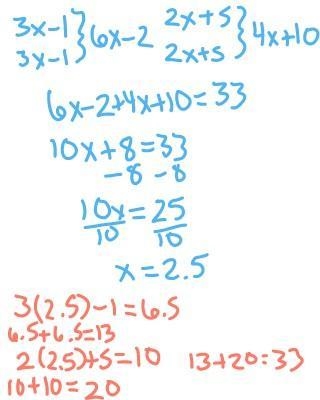 3x-1 } 6x-2 2x+5 } 4x+10
3x-1 2x+5
6x-2+4x+10=33
10x+8=33
-8 -8
10x=25
10 10
x=2.5
3(2.5)-1=6.5
6.5+6.5=13
2(2.5)+5=10 13+20=33
10+10=20